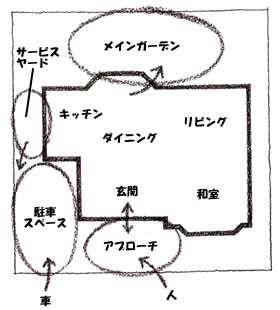 メインガーデン
サービス
ヤード
キッチン
リビング
ダイニング
玄関
和室
駐車
スペース
アプローチ
車
人